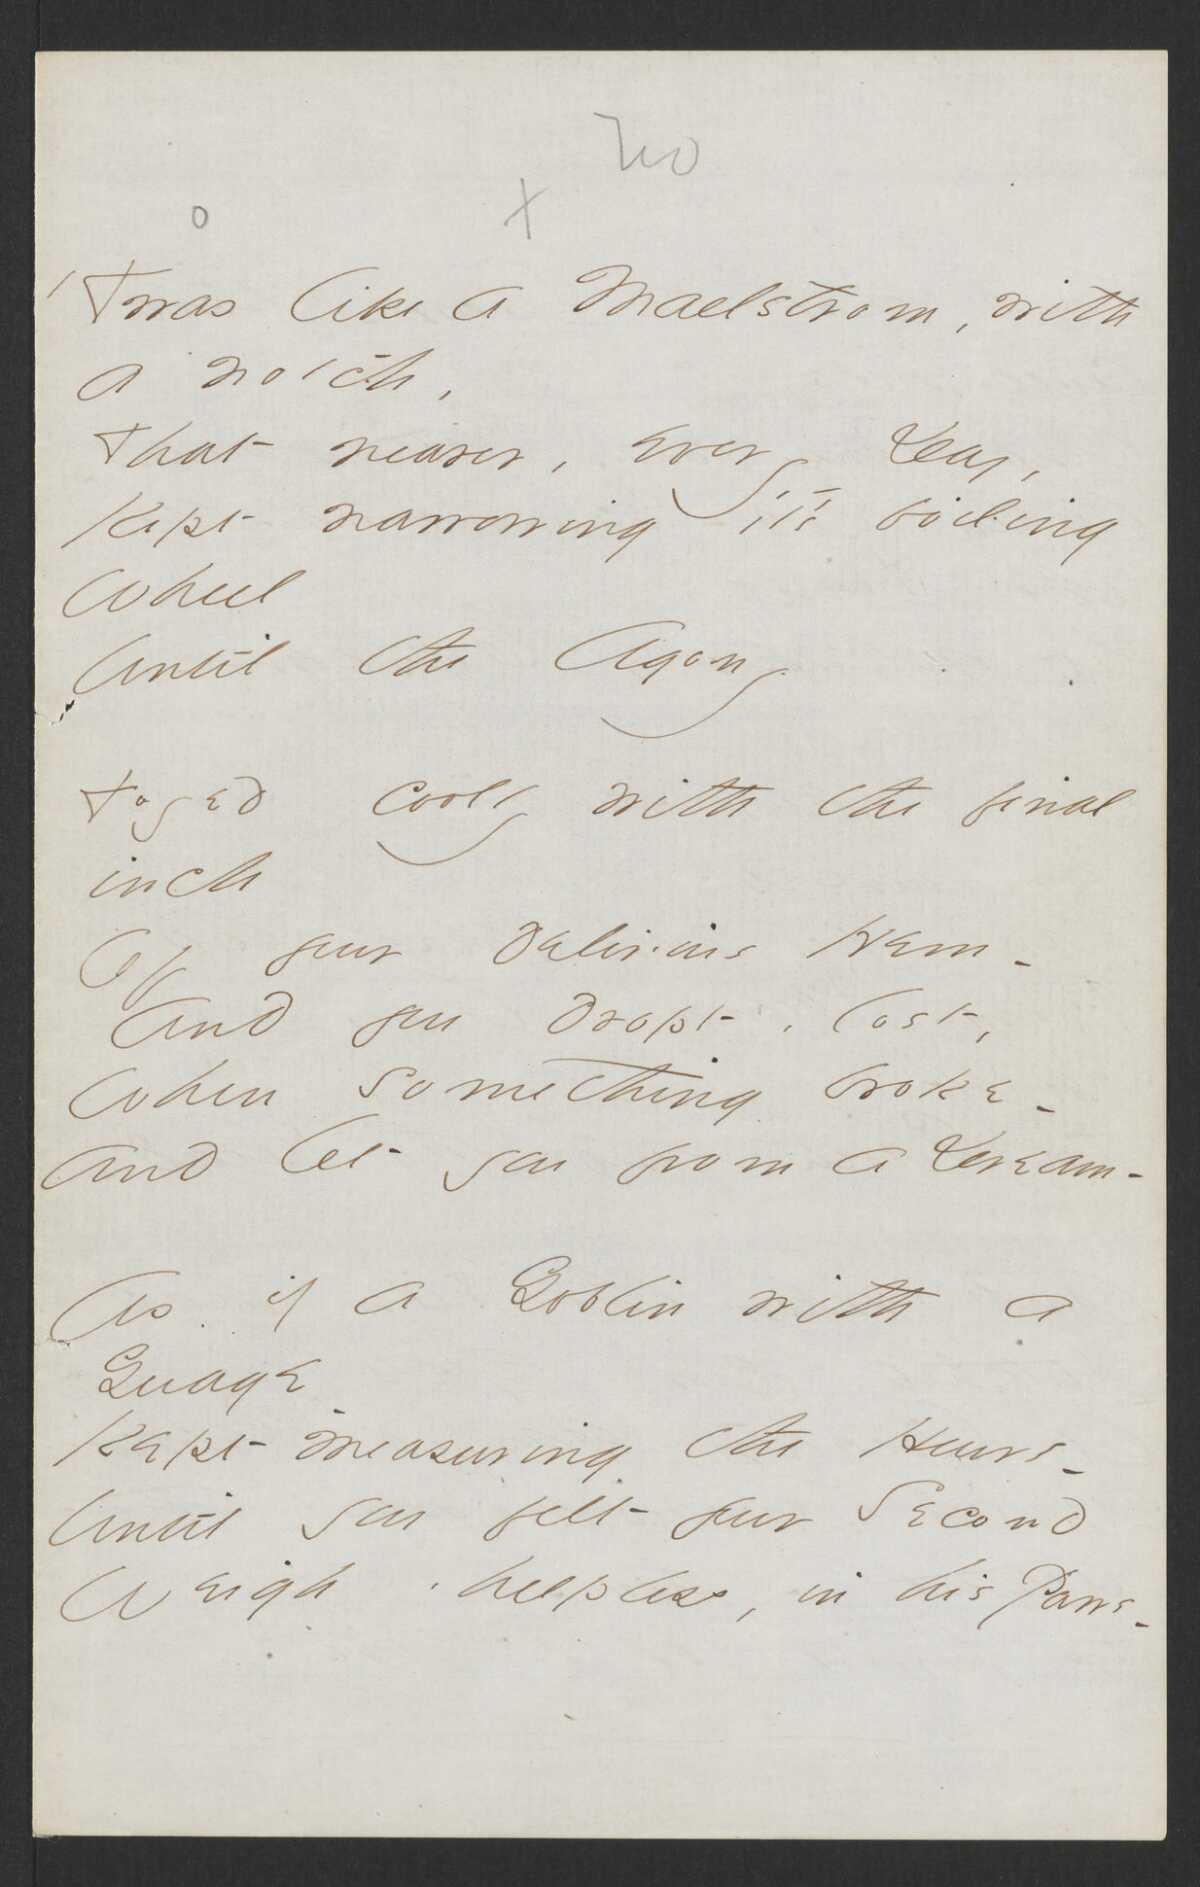 no
o x
'Twas like a Maelstrom, with
a notch,
That nearer, every Day,
Kept narrowing it's boiling
Wheel
Until the Agony
Toyed coolly with the final
inch
Of your delirious Hem -
And you dropt, lost,
When something broke -
And let you from a Dream -
As if a Goblin with a
Guage
Kept measuring the Hours -
Until you felt your Second
Weigh, helpless, in his Paws -